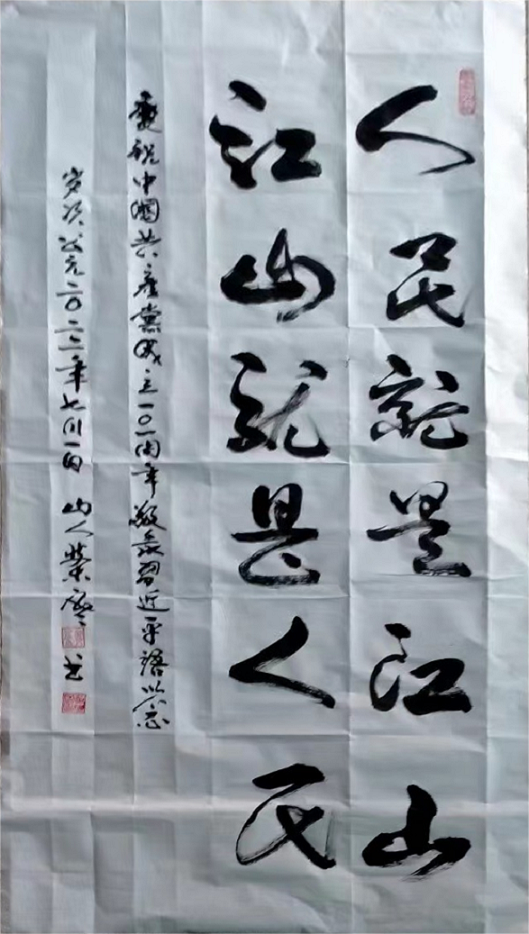 人民就是江山
江山就是人民
庆祝中國共產黨成立一〇一周年敬录習近平语以志
岁次公元二〇二二年七月一日 山人 书